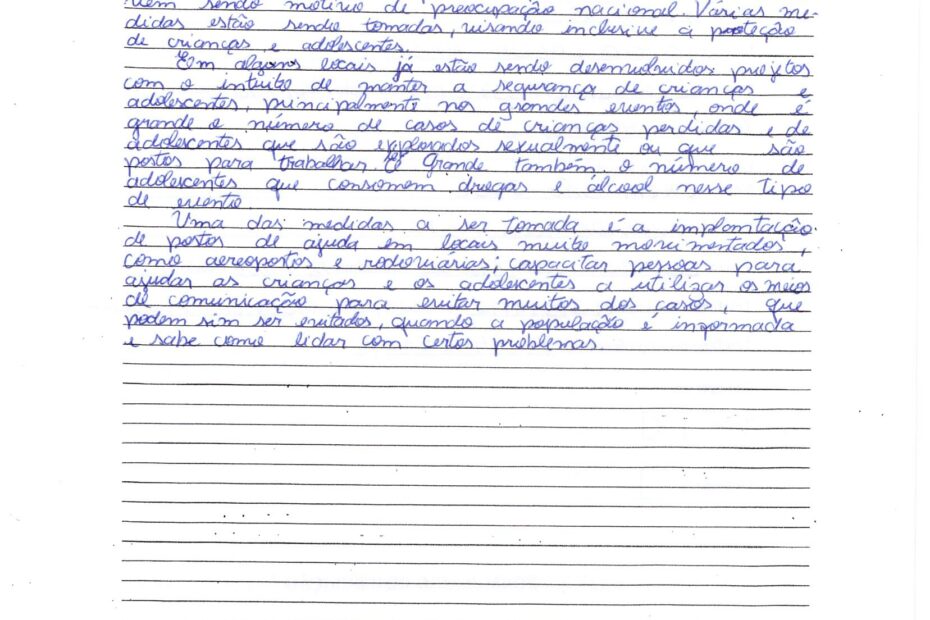 vem sendo motivo de preocupação nacional. Várias me-
didas estão sendo tomadas, visando inclusive a proteção
de crianças e adolescentes.
Em alguns locais já estão sendo desenvolvidos projetos
com o intuito de manter a segurança de crianças e
adolescentes, principalmente nos grandes eventos, onde é
grande o número de casos de crianças perdidas e de
adolescentes que são explorados sexualmente ou que são
postos para trabalhar. É grande também o número de
adolescentes que consomem drogas e álcool nesse tipo
de evento.
Uma das medidas a ser tomada é a implantação
de postos de ajuda em locais muito movimentados,
como aereoportos e rodoviárias; capacitar pessoas para
ajudar as crianças e os adolescentes a utilizar os meios
de comunicação para evitar muitos dos casos, que
podem sim ser evitados, quando a população é informada
e sabe como lidar com certos problemas.